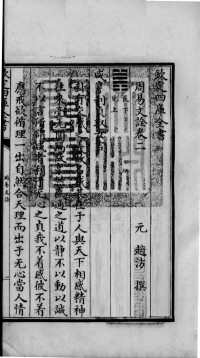 欽定四庫全書
周易文詮卷二
元 趙汸 撰
艮下
兌上
咸亨利貞取女吉
于人與天下相感精神
之道以靜不以動以誠
不以言
心之貞我不着感彼不着
應咸欲循理一出自然合天理而出于无心當人情
欽定四庫全書
周易文詮